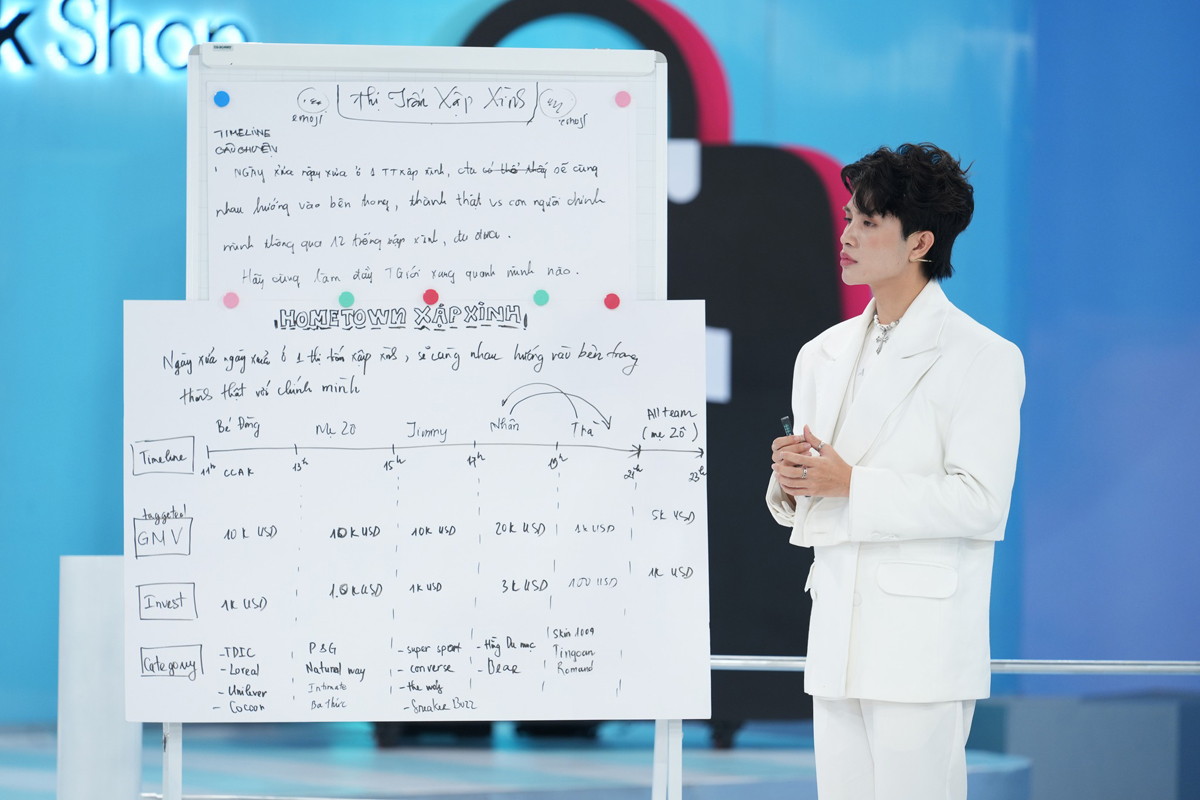 k Shop
Thị Trấn Xập Xình
emoji emoji
TIMELINE
CÂU CHUYỆN
NGÀY xửa ngày xưa ở 1 TT xập xình, có thể thấy sẽ cùng
nhau hướng vào bên trong, thành thật vs con người chính
mình thông qua 12 tiếng xập xình,
Hãy cùng làm đầy TGiới xung quanh mình nào.
HOMETOWN XẬP XÌNH
Ngày xửa ngày xưa ở 1 thị trấn xập xình, sẽ cùng nhau hướng vào bên trong
thành thật với chính mình
Bé Đồng Mẹ Zô Jimmy Nhân Trà All team
(mẹ Zô)
Timeline
11h CCAK 13h 15h 17h 19h 21h 23h
GMV 10K USD 10K USD 10K USD 20K USD 1K USD 5K USD
Invest 1K USD 1.0K USD 1K USD 3K USD 100 USD 1K USD
Category
- TDIC P&G - super sport - Skin 1004
- Loreal Natural way - converse - Dear Tingcan
- Unilever Intimate Romand
- Cocoon - Sneaker Buzz